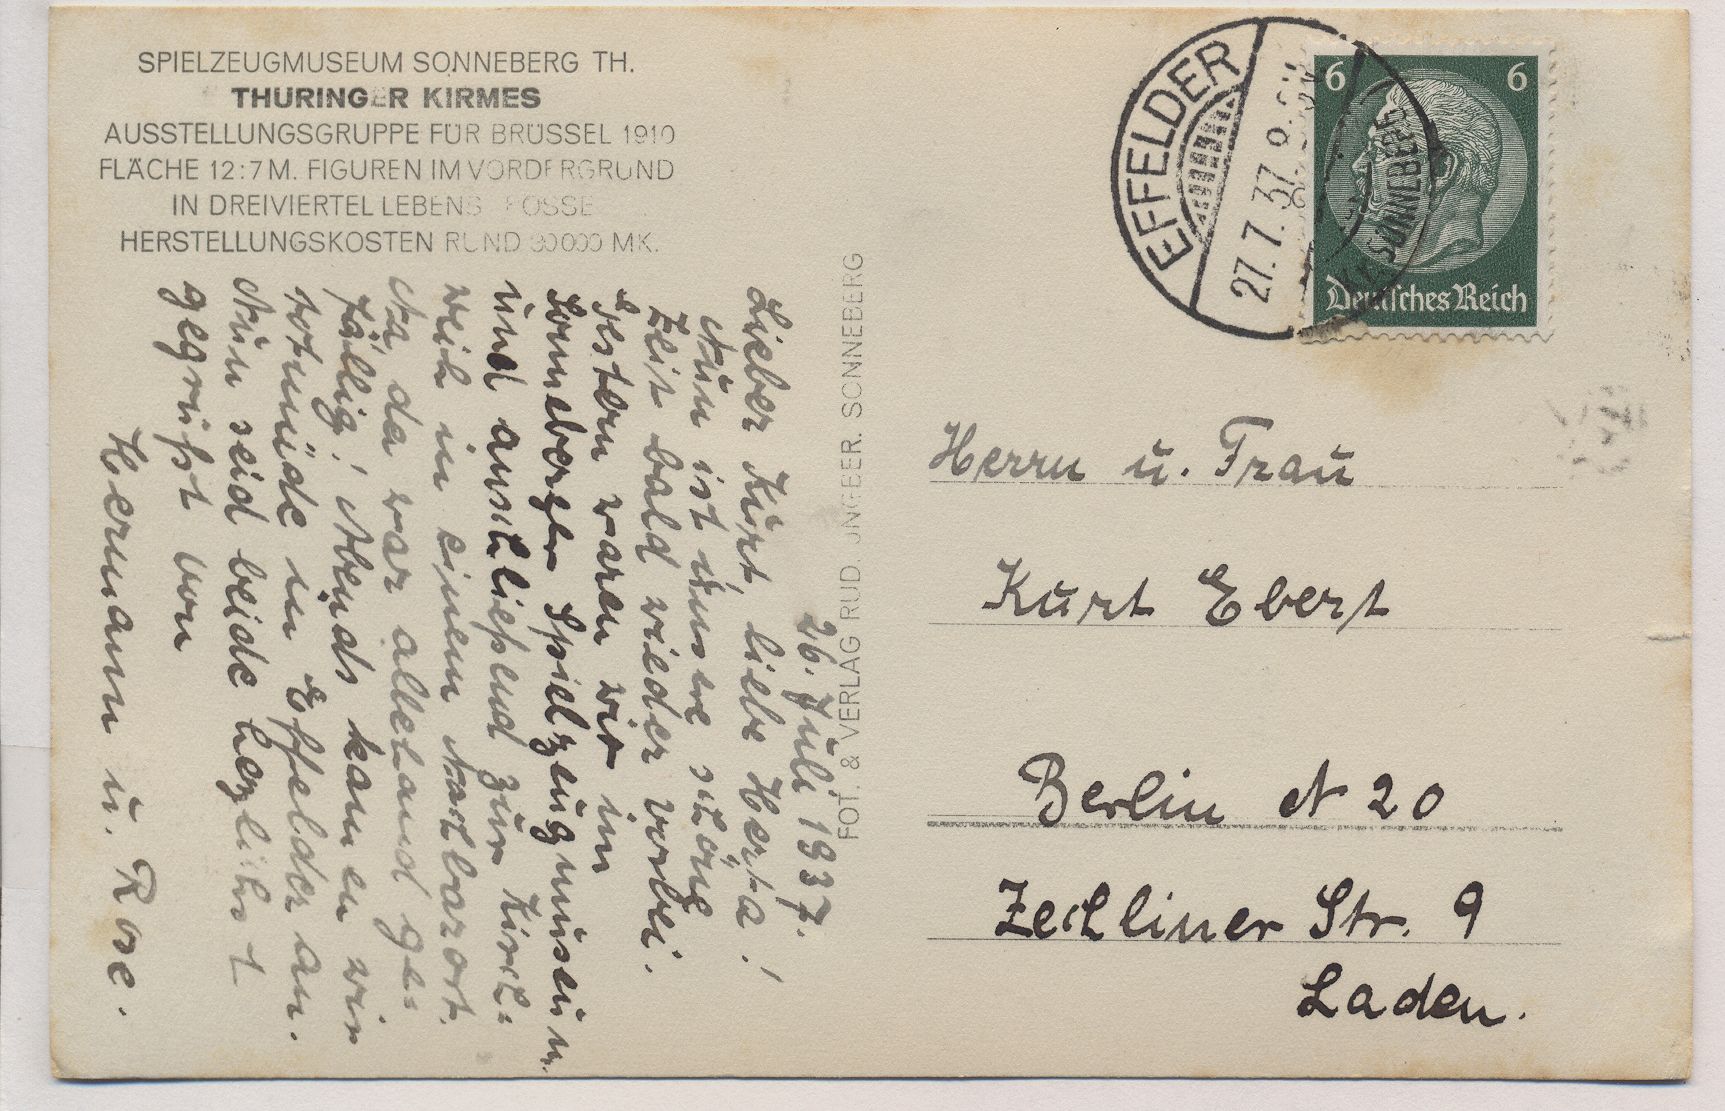 SPIELZEUGMUSEUM SONNEBERG TH.
THÜRINGER KIRMES
AUSSTELLUNGSGRUPPE FÜR BRÜSSEL 1910
FLÄCHE 12:7 M. FIGUREN IM VORDERGRUND
IN DREIVIERTEL LEBENSGRÖSSE
HERSTELLUNGSKOSTEN RUND 30000 MK.
26. Juli 1937.
Lieber Kurt liebe Herta!
Nun ist unsere schöne
Zeit bald wieder vorbei.
Gestern waren wir im
Sonneberger Spielzeugmuseum
und anschließend zur Kirch=
weih in einem Nachbarort.
Na, da war allerhand ge=
fällig! Abends kamen wir
totmüde in Effelder an.
Nun seid beide herzlichst
gegrüßt von
Hermann u. Rose.
FOT. & VERLAG RUD. UNGEER, SONNEBERG
EFFELDER
27.7.37
Kr. SONNEBERG
6 6
Deutsches Reich
Herrn u. Frau
Kurt Ebert
Berlin N 20
Zechliner Str. 9
Laden.